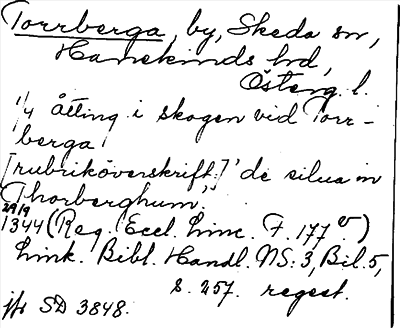 Torrberga, by, Skeda sn,
Hanekinds hd,
Österg. l.
1/4 åtting i skogen vid Torr-
berga
[rubriköverskrift:] 'de silua in
Thorberghum'
29/9
1344 (Reg. Eccl. Linc. F. 177 v)
Link. Bibl. Handl. NS: 3, Bil. 5,
s. 257. regest.
jfr SD 3848.